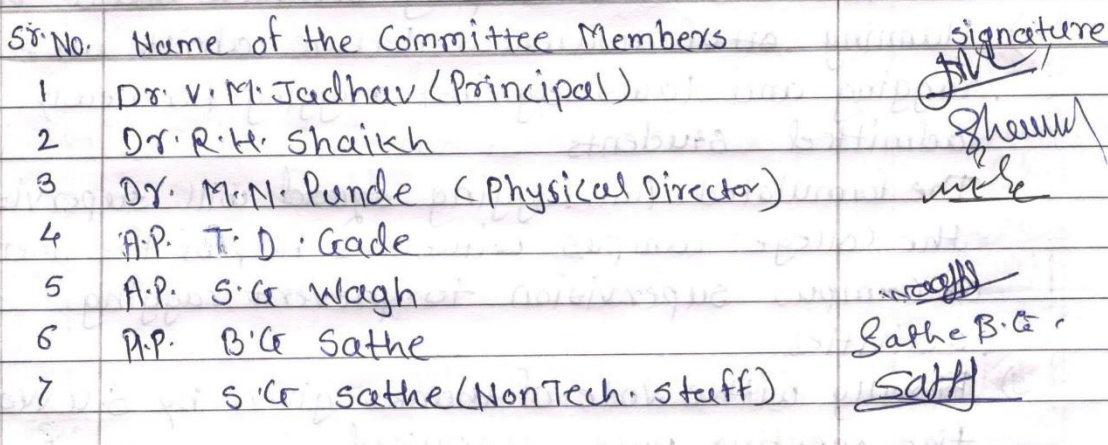 Sr. No. Name of the Committee Members signature
1 Dr. V. M. Jadhav (Principal)
2 Dr. R. H. Shaikh
3 Dr. M. N. Punde (Physical Director)
4 A.P. T. D. Gade
5 A.P. S.G Wagh
6 A.P. B.G Sathe Sathe B.G.
7 S.G Sathe (Non Tech. staff)